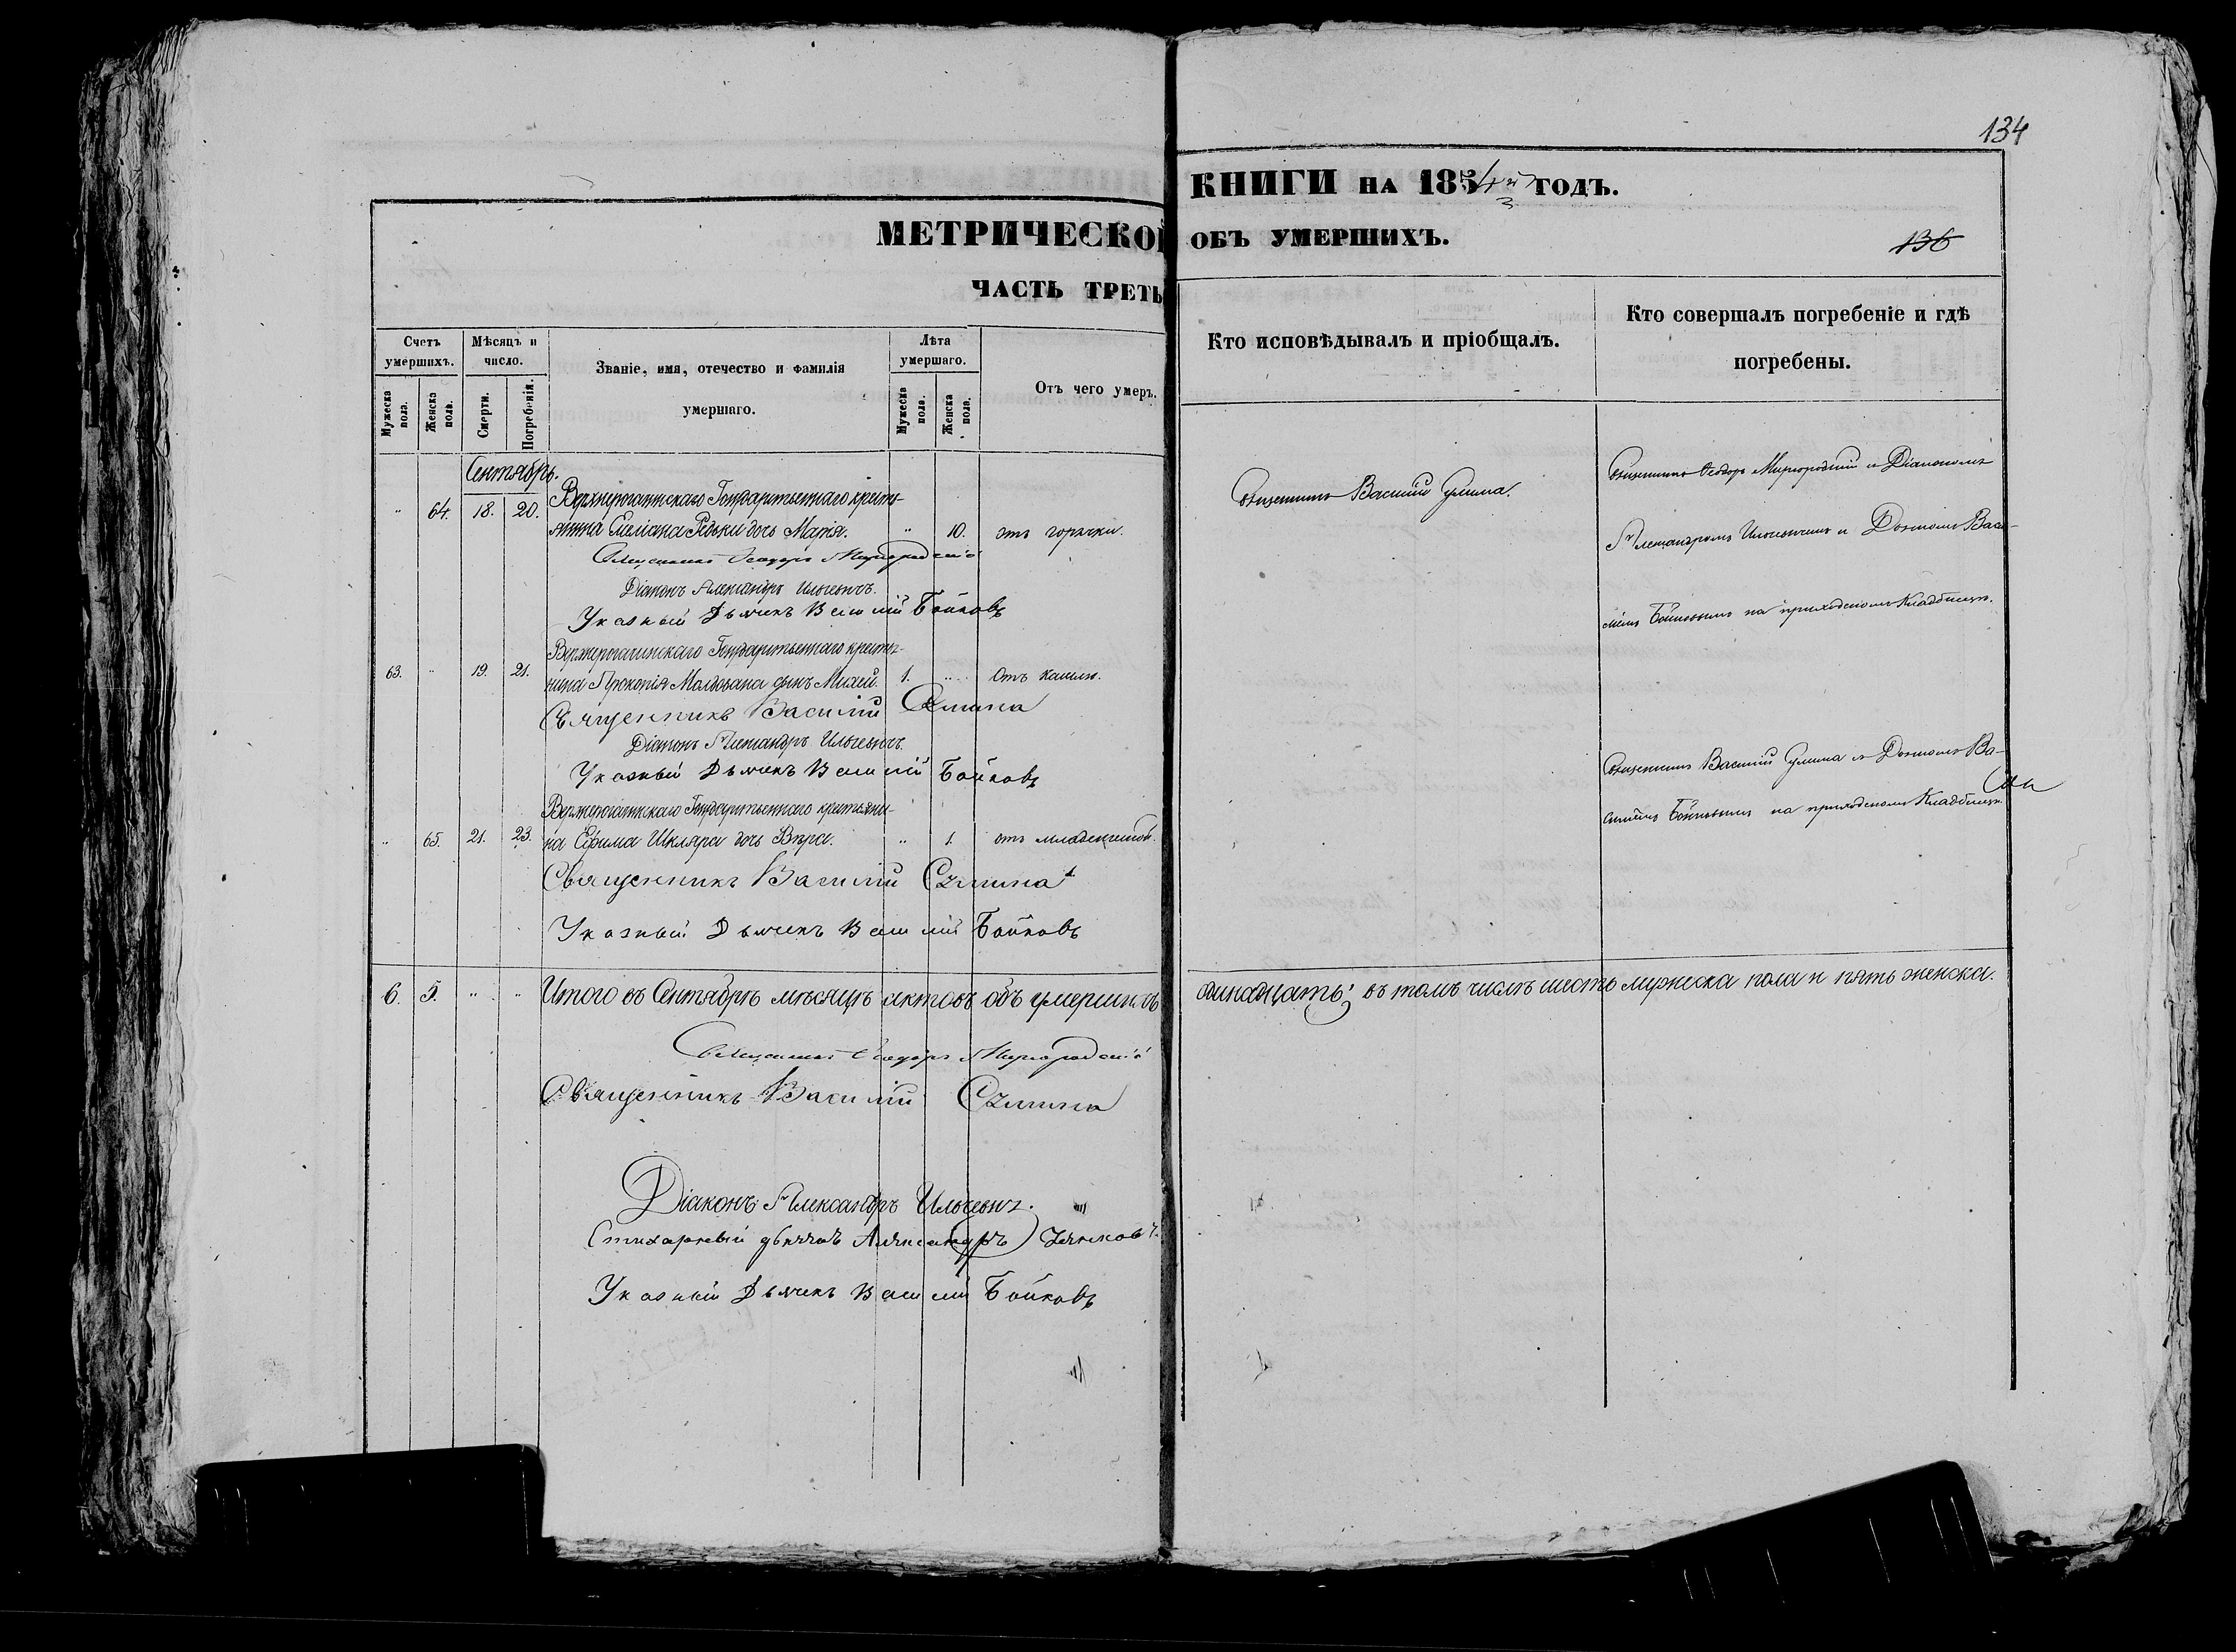 134
КНИГИ НА 1854й ГОДЪ.
МЕТРИЧЕСКОЙ ОБЪ УМЕРШИХЪ.
136
ЧАСТЬ ТРЕТЬ
Счетъ умершихъ.
Мѣсяцъ и число.
Званіе, имя, отечество и фамилія умершаго.
Лѣта умершаго.
Отъ чего умеръ.
Кто исповѣдывалъ и пріобщалъ.
Кто совершалъ погребеніе и гдѣ погребены.
Мужеска пола.
Женска пола.
Смерти.
Погребенія.
Мужеска пола.
Женска пола.
Сентябрь.
Верхнерогачинскаго Государственнаго кресть-
" 64. 18. 20.
янина Емеліана Редьки дочь Марія. " 10. отъ горячки.
Священникъ Василій
Священникъ Феодоръ Миргородскій и Діакономъ
Александромъ Ильчевичемъ и Дьячкомъ Васи-
ліемъ Бойковымъ на приходскомъ кладбищѣ.
Священникъ Феодоръ Миргородскій
Діаконъ Александръ Ильчевичъ.
Указный Дьячекъ Василій Бойковъ
Верхнерогачинскаго Государственнаго крестья-
63. " 19. 21. нина Прокопія Молдована сынъ Михей. 1. " Отъ кашлю.
Священникъ Василій
Діаконъ Александръ Ильчевичъ.
Указный Дьячекъ Василій Бойковъ
Верхнерогачинскаго Государственнаго крестьяни-
" 65. 21. 23. на Ефима Шкляра дочь Вѣра. " 1. отъ младенческой.
Священникъ Василій и Дьячкомъ Ва-
силіемъ Бойковымъ на приходскомъ кладбищѣ.
Священникъ Василій
Указный Дьячекъ Василій Бойковъ
6. 5. " " Итого въ Сентябрѣ мѣсяцѣ актовъ объ умершихъ одинадцать; въ томъ числѣ шесть мужеска пола и пять женска.
Священникъ Феодоръ Миргородскій
Священникъ Василій
Діаконъ Александръ Ильчевичъ.
Стихарный дьячокъ Александръ
Указный Дьячекъ Василій Бойковъ